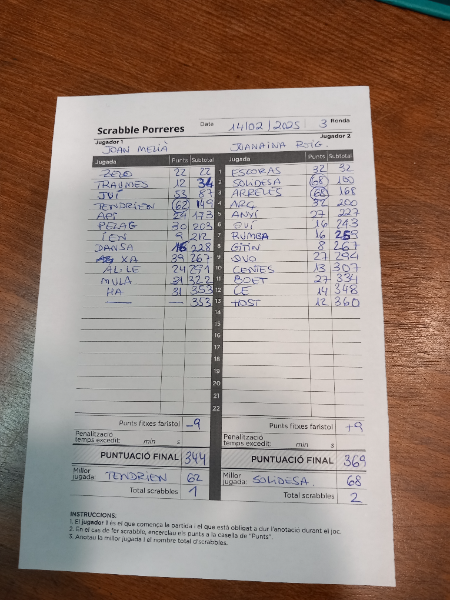 Scrabble Porreres Data 14/02/2025 3 Ronda
Jugador 1 Jugador 2
JOAN MELIÀ JOANAINA ROIG.
Jugada Punts Subtotal Jugada Punts Subtotal
ZELO 22 22 1 ESCORAS 32 32
TRAUMES 12 34 2 SOLIDESA 68 100
JVI 53 87 3 ARRELES 68 168
TENDRIEN 62 149 4 ARG 32 200
API 24 173 5 ANYÍ 27 227
PELAG 30 203 6 OVI 16 243
9 212 7 RUMBA 16 259
DANSA 16 228 8 GITIN 8 267
XA 39 267 9 DUO 27 294
AL·LE 24 291 10 CENTES 13 307
MULA 31 322 11 BOET 27 334
HA 31 353 12 CE 14 348
— — 353 13 HOST 12 360
14
15
16
17
18
19
20
21
22
Punts fitxes faristol -9 Punts fitxes faristol +9
Penalització temps excedit: min s Penalització temps excedit: min s
PUNTUACIÓ FINAL 344 PUNTUACIÓ FINAL 369
Millor jugada: TENDRIEN 62 Millor jugada: SOLIDESA 68
Total scrabbles 1 Total scrabbles 2
INSTRUCCIONS:
1. El jugador 1 és el que comença la partida i el que està obligat a dur l'anotació durant el joc.
2. En el cas de fer scrabble, encerclau els punts a la casella de "Punts".
3. Anotau la millor jugada i el nombre total d'scrabbles.